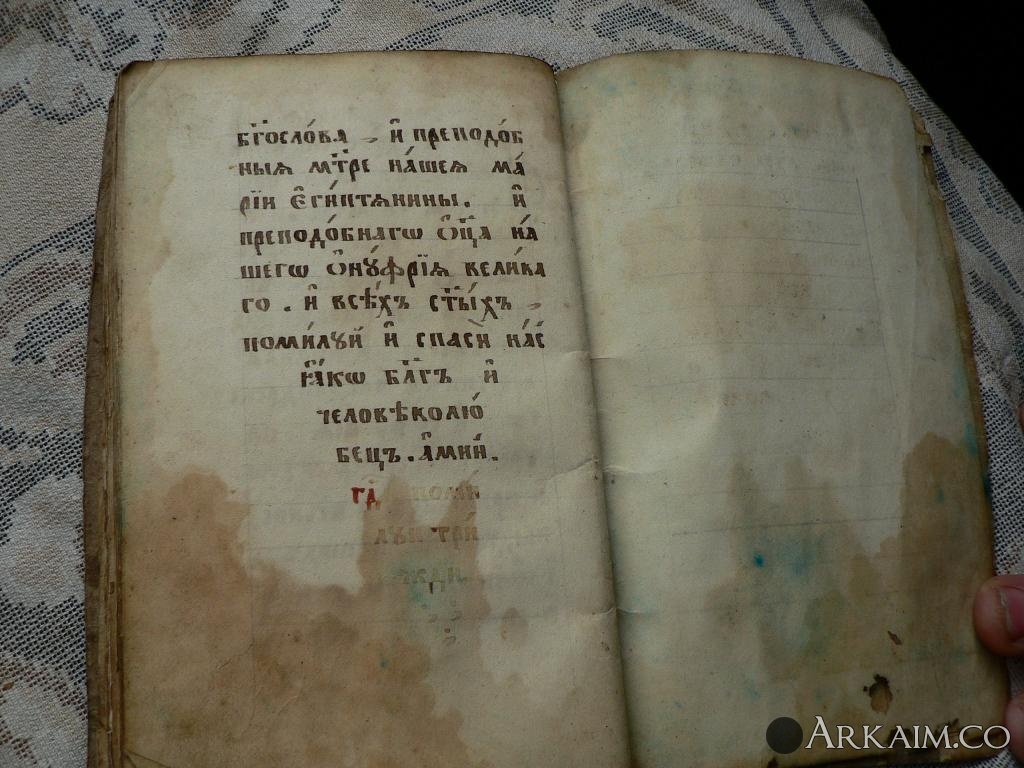 бг҃ослѡ́ва , и҆ преподо́б
ныѧ мт҃ре на́шеѧ ма
рі́и є҆ги́птѧнины. и҆
преподо́бнагѡ ѻ҆ц҃а на́
шегѡ ѻ҆нꙋ́фрїѧ вели́ка
го . и҆ всѣ́хъ ст҃ы́хъ ,
поми́лꙋй и҆ спаси́ на́с
ꙗ҆́кѡ бл҃гъ и҆
человѣколю́
бецъ . а҆ми́н.
гд҃ поми
лꙋи три́
жди
ARKAIM.CO